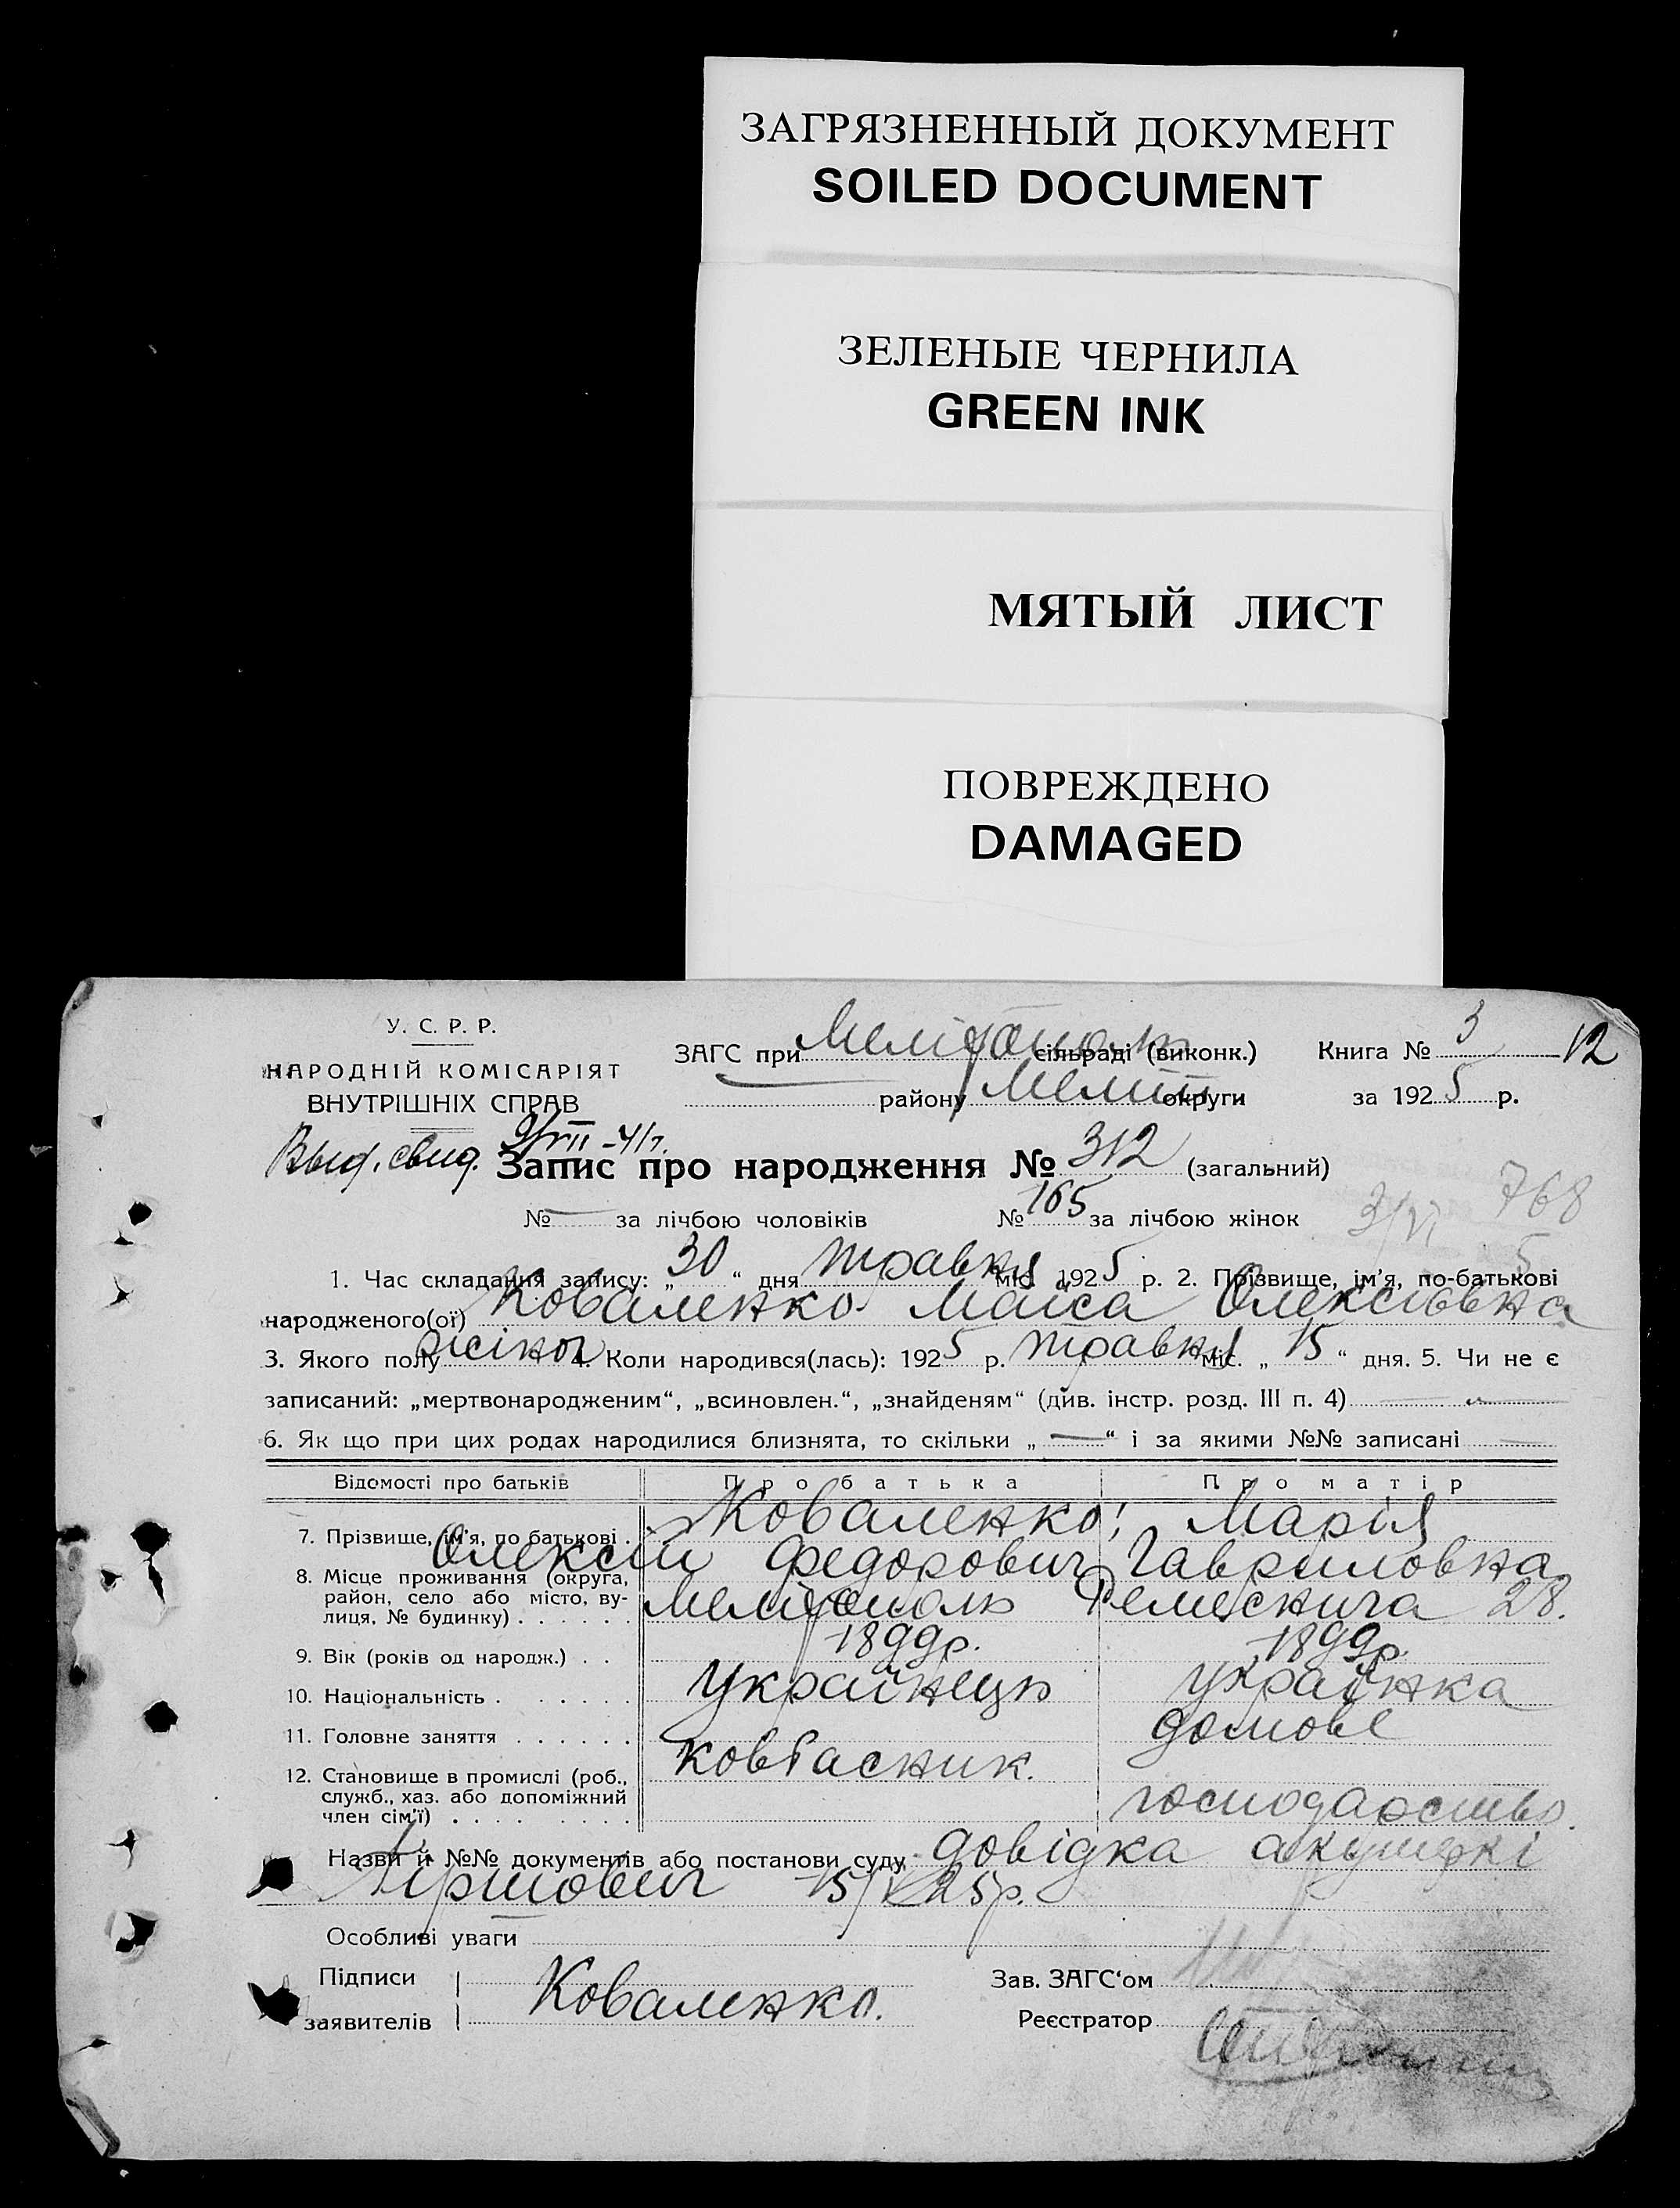 ЗАГРЯЗНЕННЫЙ ДОКУМЕНТ
SOILED DOCUMENT
ЗЕЛЕНЫЕ ЧЕРНИЛА
GREEN INK
МЯТЫЙ ЛИСТ
ПОВРЕЖДЕНО
DAMAGED
У. С. Р. Р.
НАРОДНІЙ КОМІСАРІЯТ
ВНУТРІШНІХ СПРАВ
ЗАГС при Мелітополь сільраді (виконк.) Книга № 3 12
району Меліт округи за 1925 р.
Выд. свид. 9/VII-41г.
Запис про народження № 312 (загальний)
№ — за лічбою чоловіків № 165 за лічбою жінок 3/VI 768
5
1. Час складання запису: „30“ дня травня міс. 1925 р. 2. Прізвище, ім’я, по-батькові
народженого(ої) Коваленко Маіса Олексієвна
3. Якого полу жіноч 4. Коли народився(лась): 1925 р. травня міс. „15“ дня. 5. Чи не є
записаний: „мертвонародженим“, „всиновлен.“, „знайденям“ (див. інстр. розд. III п. 4) —
6. Як що при цих родах народилися близнята, то скільки „—“ і за якими №№ записані —
Відомості про батьків Про батька Про матір
7. Прізвище, ім’я, по батькові . Коваленко Марія
Олексій Федорович Гавриловна
8. Місце проживання (округа,
район, село або місто, вулиця, № будинку) . . . . . . Мелітополь 28.
9. Вік (років од народж.) . . 1899р. 1899р.
10. Національність . . . . . . українець українка
11. Головне заняття . . . . . . ковбасник. домове
12. Становище в промислі (роб.,
служб., хаз. або допоміжний
член сім’ї) . . . . . . . . господарство.
Назви й №№ документів або постанови суду довідка акушеркі
15/V 25р.
Особливі уваги
Підписи Зав. ЗАГС‘ом
заявителів Коваленко. Реєстратор